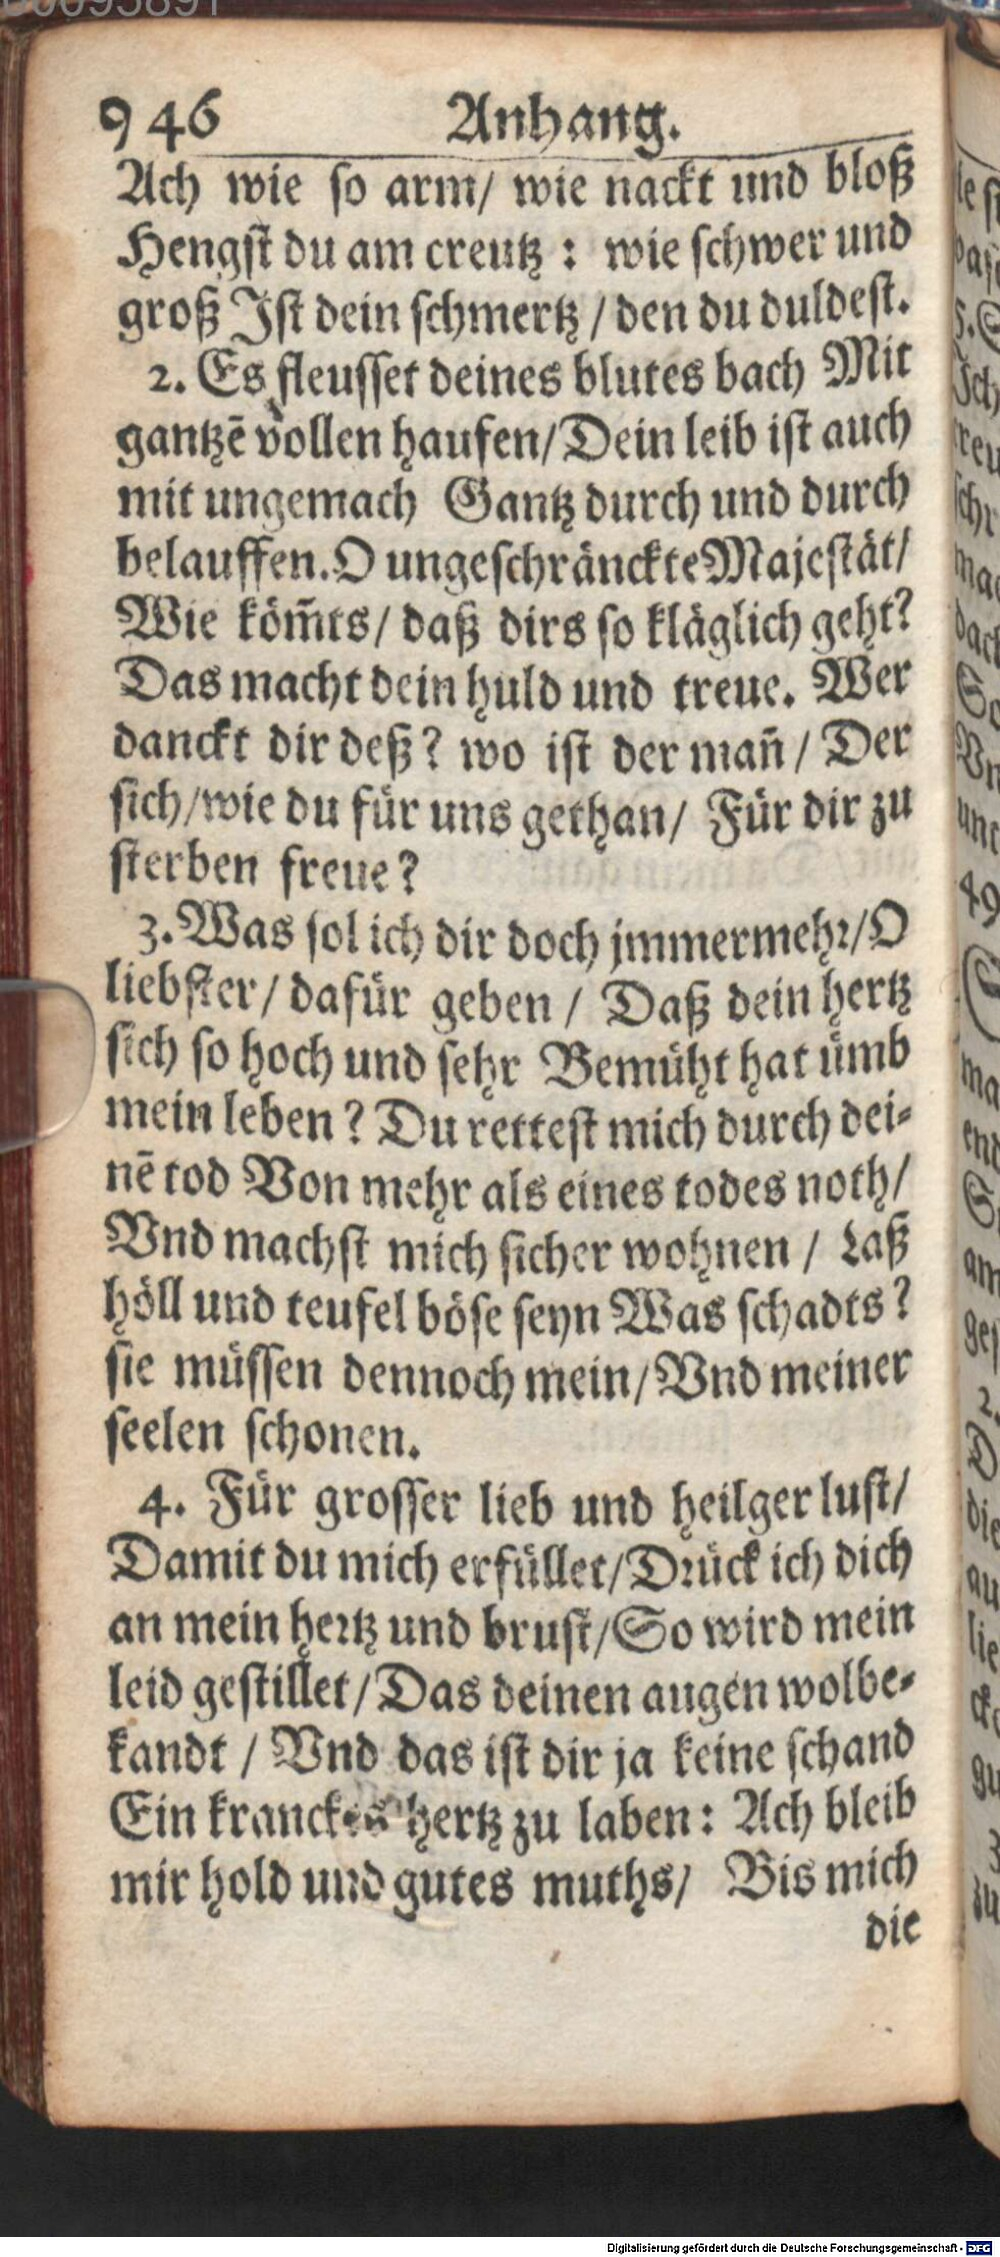 946 Anhang.
Ach wie so arm/ wie nackt und bloß
Hengst du am creutz : wie schwer und
groß Jst dein schmertz / den du duldest.
2. Es fleusset deines blutes bach Mit
gantzē vollen haufen/ Dein leib ist auch
mit ungemach Gantz durch und durch
belauffen. O ungeschränckte Majestät/
Wie köm̄ts/ daß dirs so kläglich geht?
Das macht dein huld und treue. Wer
danckt dir deß? wo ist der man̄ / Der
sich/ wie du für uns gethan/ Für dir zu
sterben freue?
3. Was sol ich dir doch jmmermehr/ O
liebster/ dafür geben / Daß dein hertz
sich so hoch und sehr Bemüht hat ümb
mein leben? Du rettest mich durch dei-
nē tod Von mehr als eines todes noth/
Vnd machst mich sicher wohnen / Laß
höll und teufel böse seyn Was schadts?
sie müssen dennoch mein/ Vnd meiner
seelen schonen.
4. Für grosser lieb und heilger lust/
Damit du mich erfüllet/ Drück ich dich
an mein hertz und brust/ So wird mein
leid gestillet/ Das deinen augen wolbe-
kandt / Vnd das ist dir ja keine schand
Ein kranckes hertz zu laben: Ach bleib
mir hold und gutes muths/ Bis mich
die
Digitalisierung gefördert durch die Deutsche Forschungsgemeinschaft - DFG